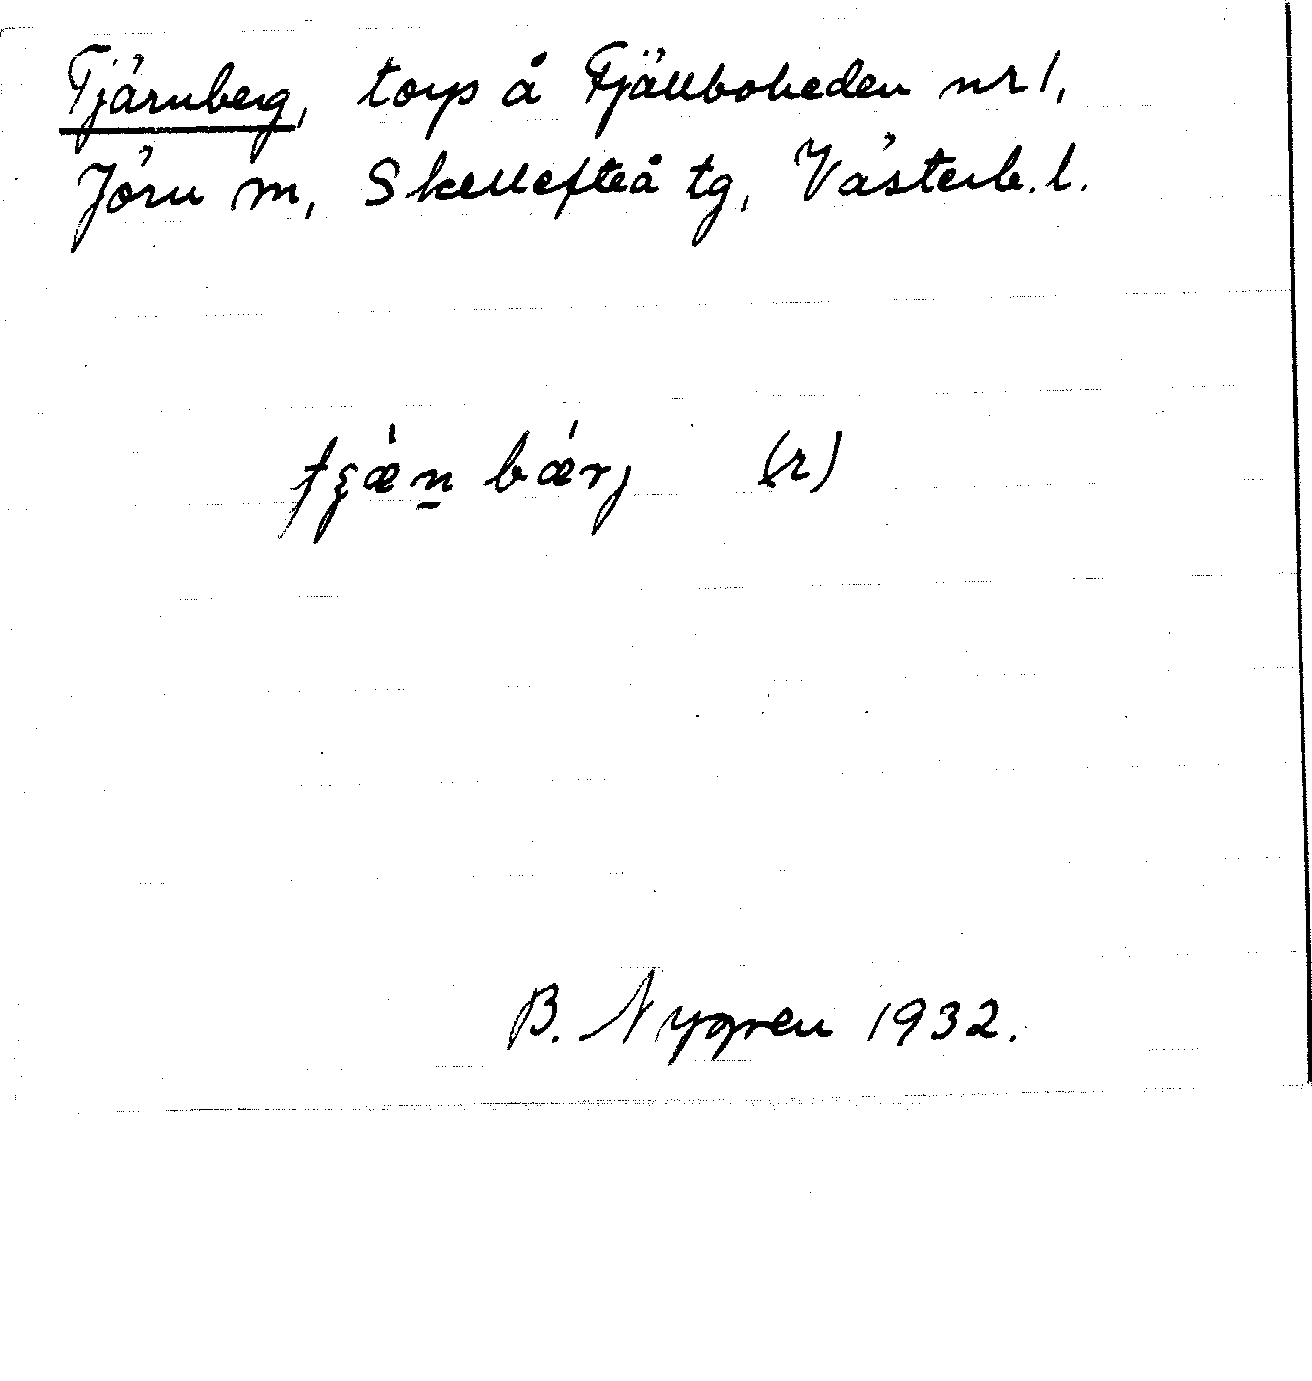 Tjärnberg, torp å Fjällboheden nr 1,
Jörn sn, Skellefteå tg, Västerb. l.
bær̀j (r)
B. Nygren 1932.